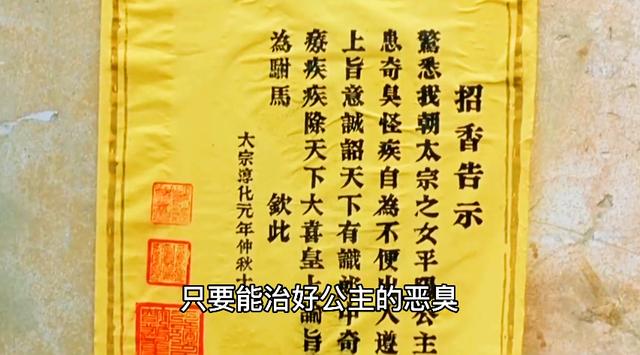 招香告示
驚悉我朝太宗之女平 公主
患奇臭怪疾自為不便出入遵
上旨意誠詔天下有識 中奇
療疾疾除天下大喜皇上諭旨
為駙馬 欽此
大宗淳化元年仲秋十
只要能治好公主的恶臭